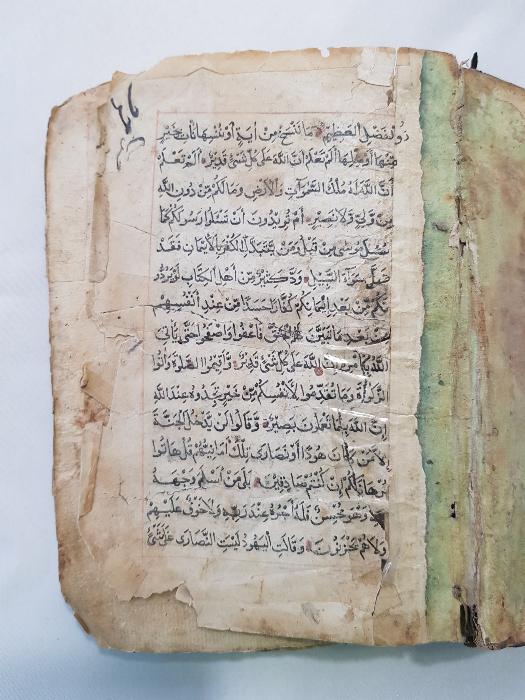 ذُو الْفَضْلِ الْعَظِيمِ مَا نَنْسَخْ مِنْ آيَةٍ أَوْ نُنْسِهَا نَأْتِ بِخَيْرٍ
مِنْهَا أَوْ مِثْلِهَا أَلَمْ تَعْلَمْ أَنَّ اللَّهَ عَلَى كُلِّ شَيْءٍ قَدِيرٌ أَلَمْ تَعْلَمْ
أَنَّ اللَّهَ لَهُ مُلْكُ السَّمَوَاتِ وَالْأَرْضِ وَمَا لَكُمْ مِنْ دُونِ اللَّهِ
مِنْ وَلِيٍّ وَلَا نَصِيرٍ أَمْ تُرِيدُونَ أَنْ تَسْئَلُوا رَسُولَكُمْ كَمَا
سُئِلَ مُوسَى مِنْ قَبْلُ وَمَنْ يَتَبَدَّلِ الْكُفْرَ بِالْإِيمَانِ فَقَدْ
ضَلَّ سَوَاءَ السَّبِيلِ وَدَّ كَثِيرٌ مِنْ أَهْلِ الْكِتَابِ لَوْ يَرُدُّو
نَكُمْ مِنْ بَعْدِ إِيمَانِكُمْ كُفَّارًا حَسَدًا مِنْ عِنْدِ أَنْفُسِهِمْ
مِنْ بَعْدِ مَا تَبَيَّنَ الْحَقُّ فَاعْفُوا وَاصْفَحُوا حَتَّى يَأْتِيَ
اللَّهُ بِأَمْرِهِ إِنَّ اللَّهَ عَلَى كُلِّ شَيْءٍ قَدِيرٌ وَأَقِيمُوا الصَّلَاةَ وَآتُوا
الزَّكَوٰةَ وَمَا تُقَدِّمُوا لِأَنْفُسِكُمْ مِنْ خَيْرٍ تَجِدُوهُ عِنْدَ اللَّهِ
إِنَّ اللَّهَ بِمَا تَعْمَلُونَ بَصِيرٌ وَقَالُوا لَنْ يَدْخُلَ الْجَنَّةَ
إِلَّا مَنْ كَانَ هُودًا أَوْ نَصَارَى تِلْكَ أَمَانِيُّهُمْ قُلْ هَاتُوا
بُرْهَانَكُمْ إِنْ كُنْتُمْ صَادِقِينَ بَلَى مَنْ أَسْلَمَ وَجْهَهُ
وَهُوَ مُحْسِنٌ فَلَهُ أَجْرُهُ عِنْدَ رَبِّهِ وَلَا خَوْفٌ عَلَيْهِمْ
وَلَا هُمْ يَحْزَنُونَ وَقَالَتِ الْيَهُودُ لَيْسَتِ النَّصَارَى عَلَى شَيْءٍ